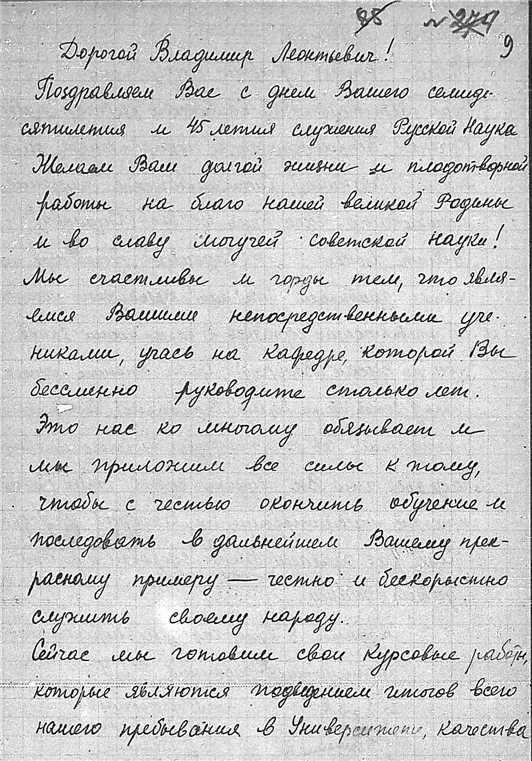 85 N 279
9
Дорогой Владимир Леонтьевич!
Поздравляем Вас с днем Вашего семиде-
сятилетия и 45 летия служения Русской Науке
Желаем Вам долгой жизни и плодотворной
работы на благо нашей великой Родины
и во славу могучей советской науки!
Мы счастливы и горды тем, что явля-
емся Вашими непосредственными уче-
никами, учась на кафедре, которой Вы
бессменно руководите столько лет.
Это нас ко многому обязывает и
мы приложим все силы к тому,
чтобы с честью окончить обучение и
последовать в дальнейшем Вашему прек-
расному примеру — честно и бескорыстно
служить своему народу.
Сейчас мы готовим свои курсовые работы,
которые являются подведением итогов всего
нашего пребывания в Университете, качества